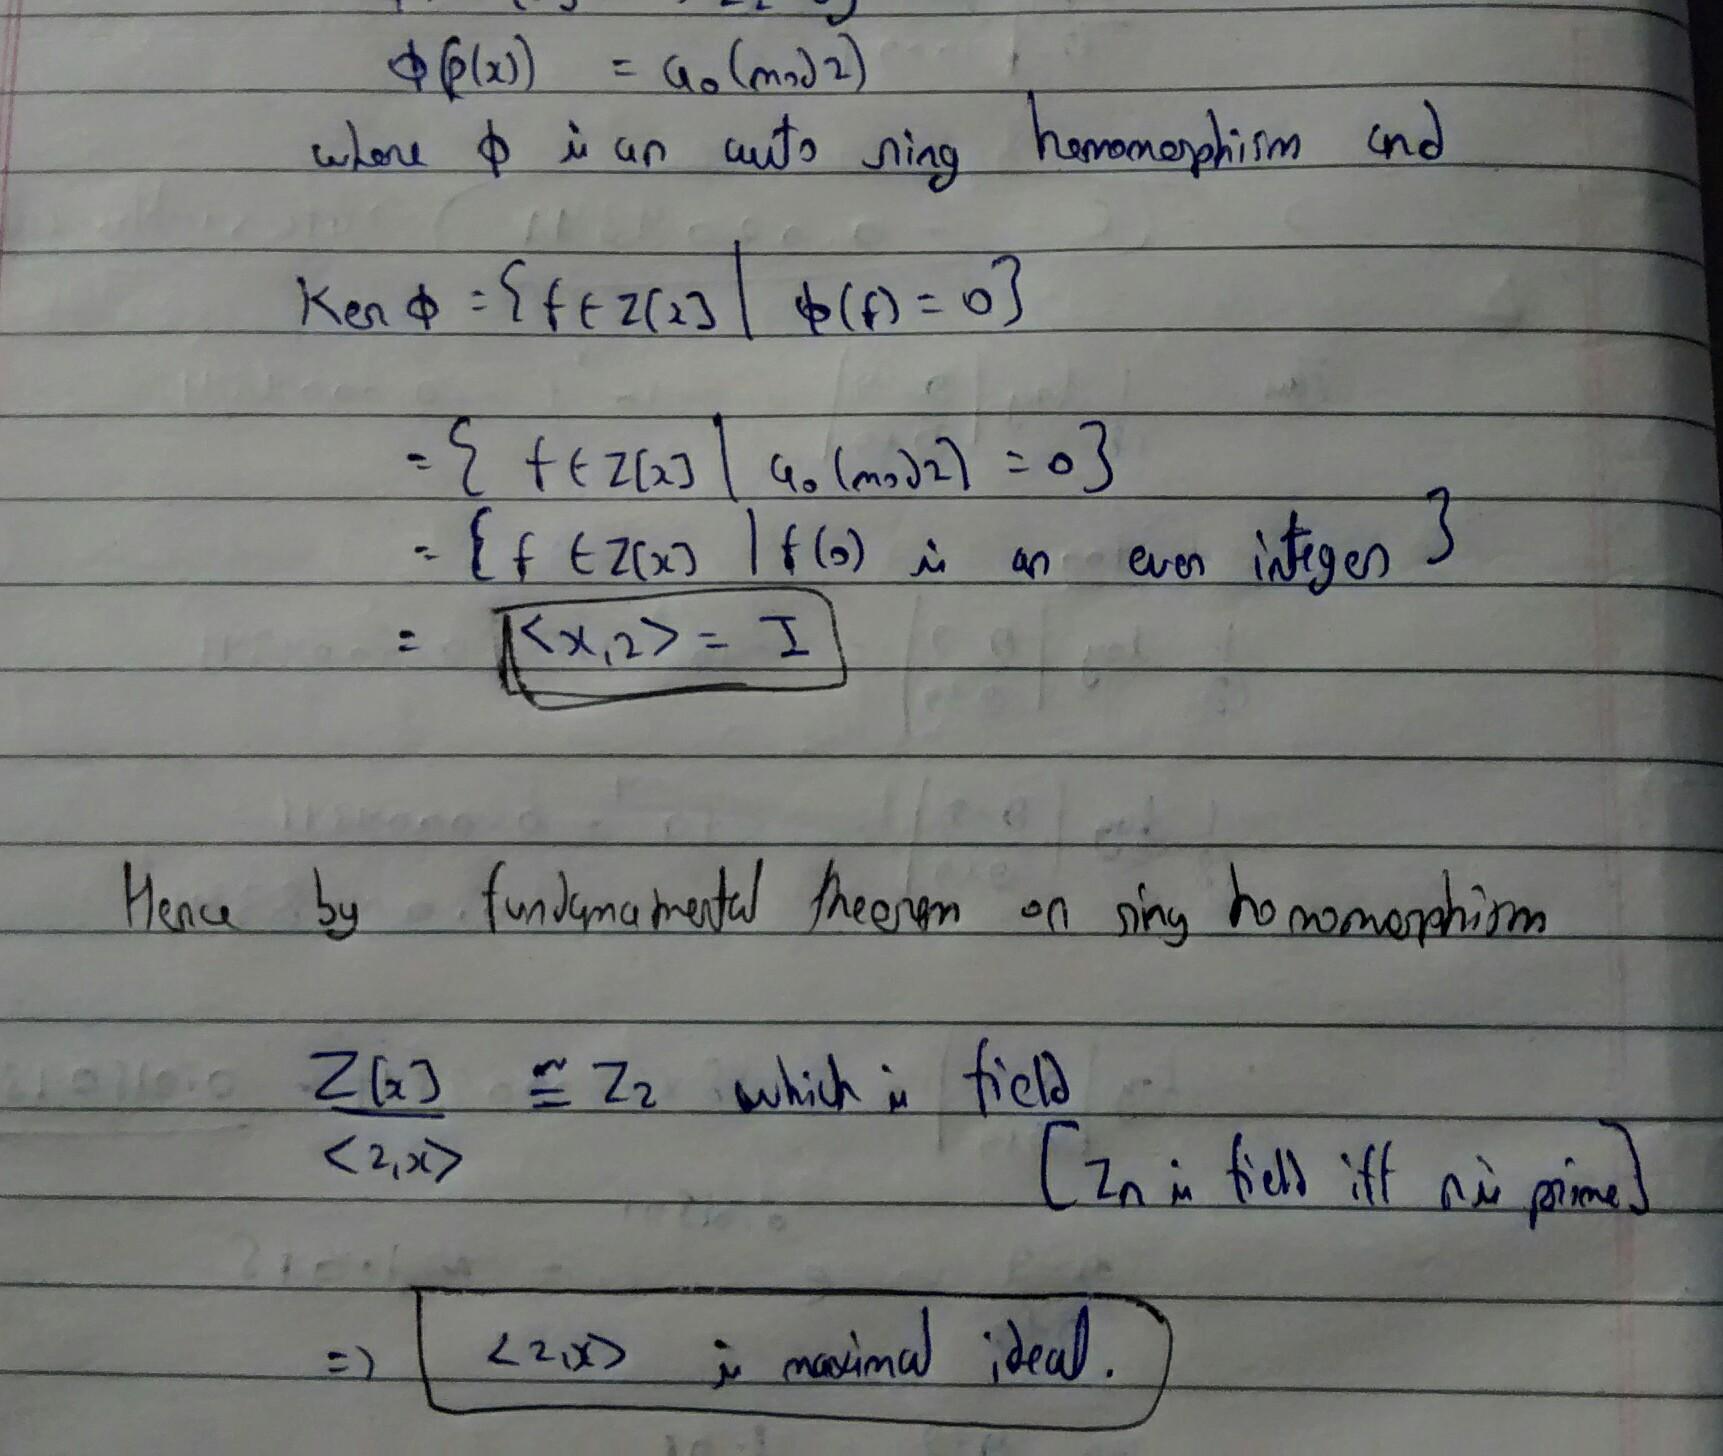 ϕ(p(x)) = a₀(mod2)
where ϕ is an auto ring homomorphism and
Ker ϕ = {f ∈ Z[x] | ϕ(f) = 0}
= { f ∈ Z[x] | a₀(mod2) = 0}
= {f ∈ Z[x] | f(0) is an even integer }
= <x,2> = I
Hence by fundamamental theorem on ring homomorphism
Z[x] ≅ Z₂ which is field
<2,x>
[Zn is field iff n is prime]
=> <2,x> is maximal ideal.